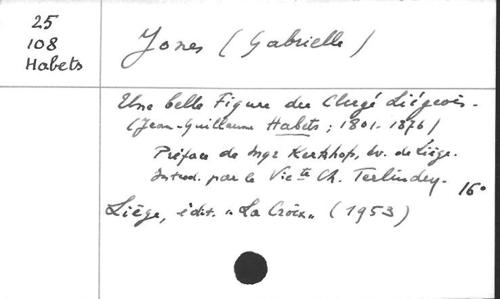 25
108
Habets
Jones (Gabrielle)
Une belle Figure du Clergé Liégeois.
(Jean-Guillaume Habets; 1801-1876)
Préface de Mgr Kerkhofs, év. de Liège.
Introd. par le Victe Ch. Terlinden.
16°
Liège, édit. "La Croix" (1953)